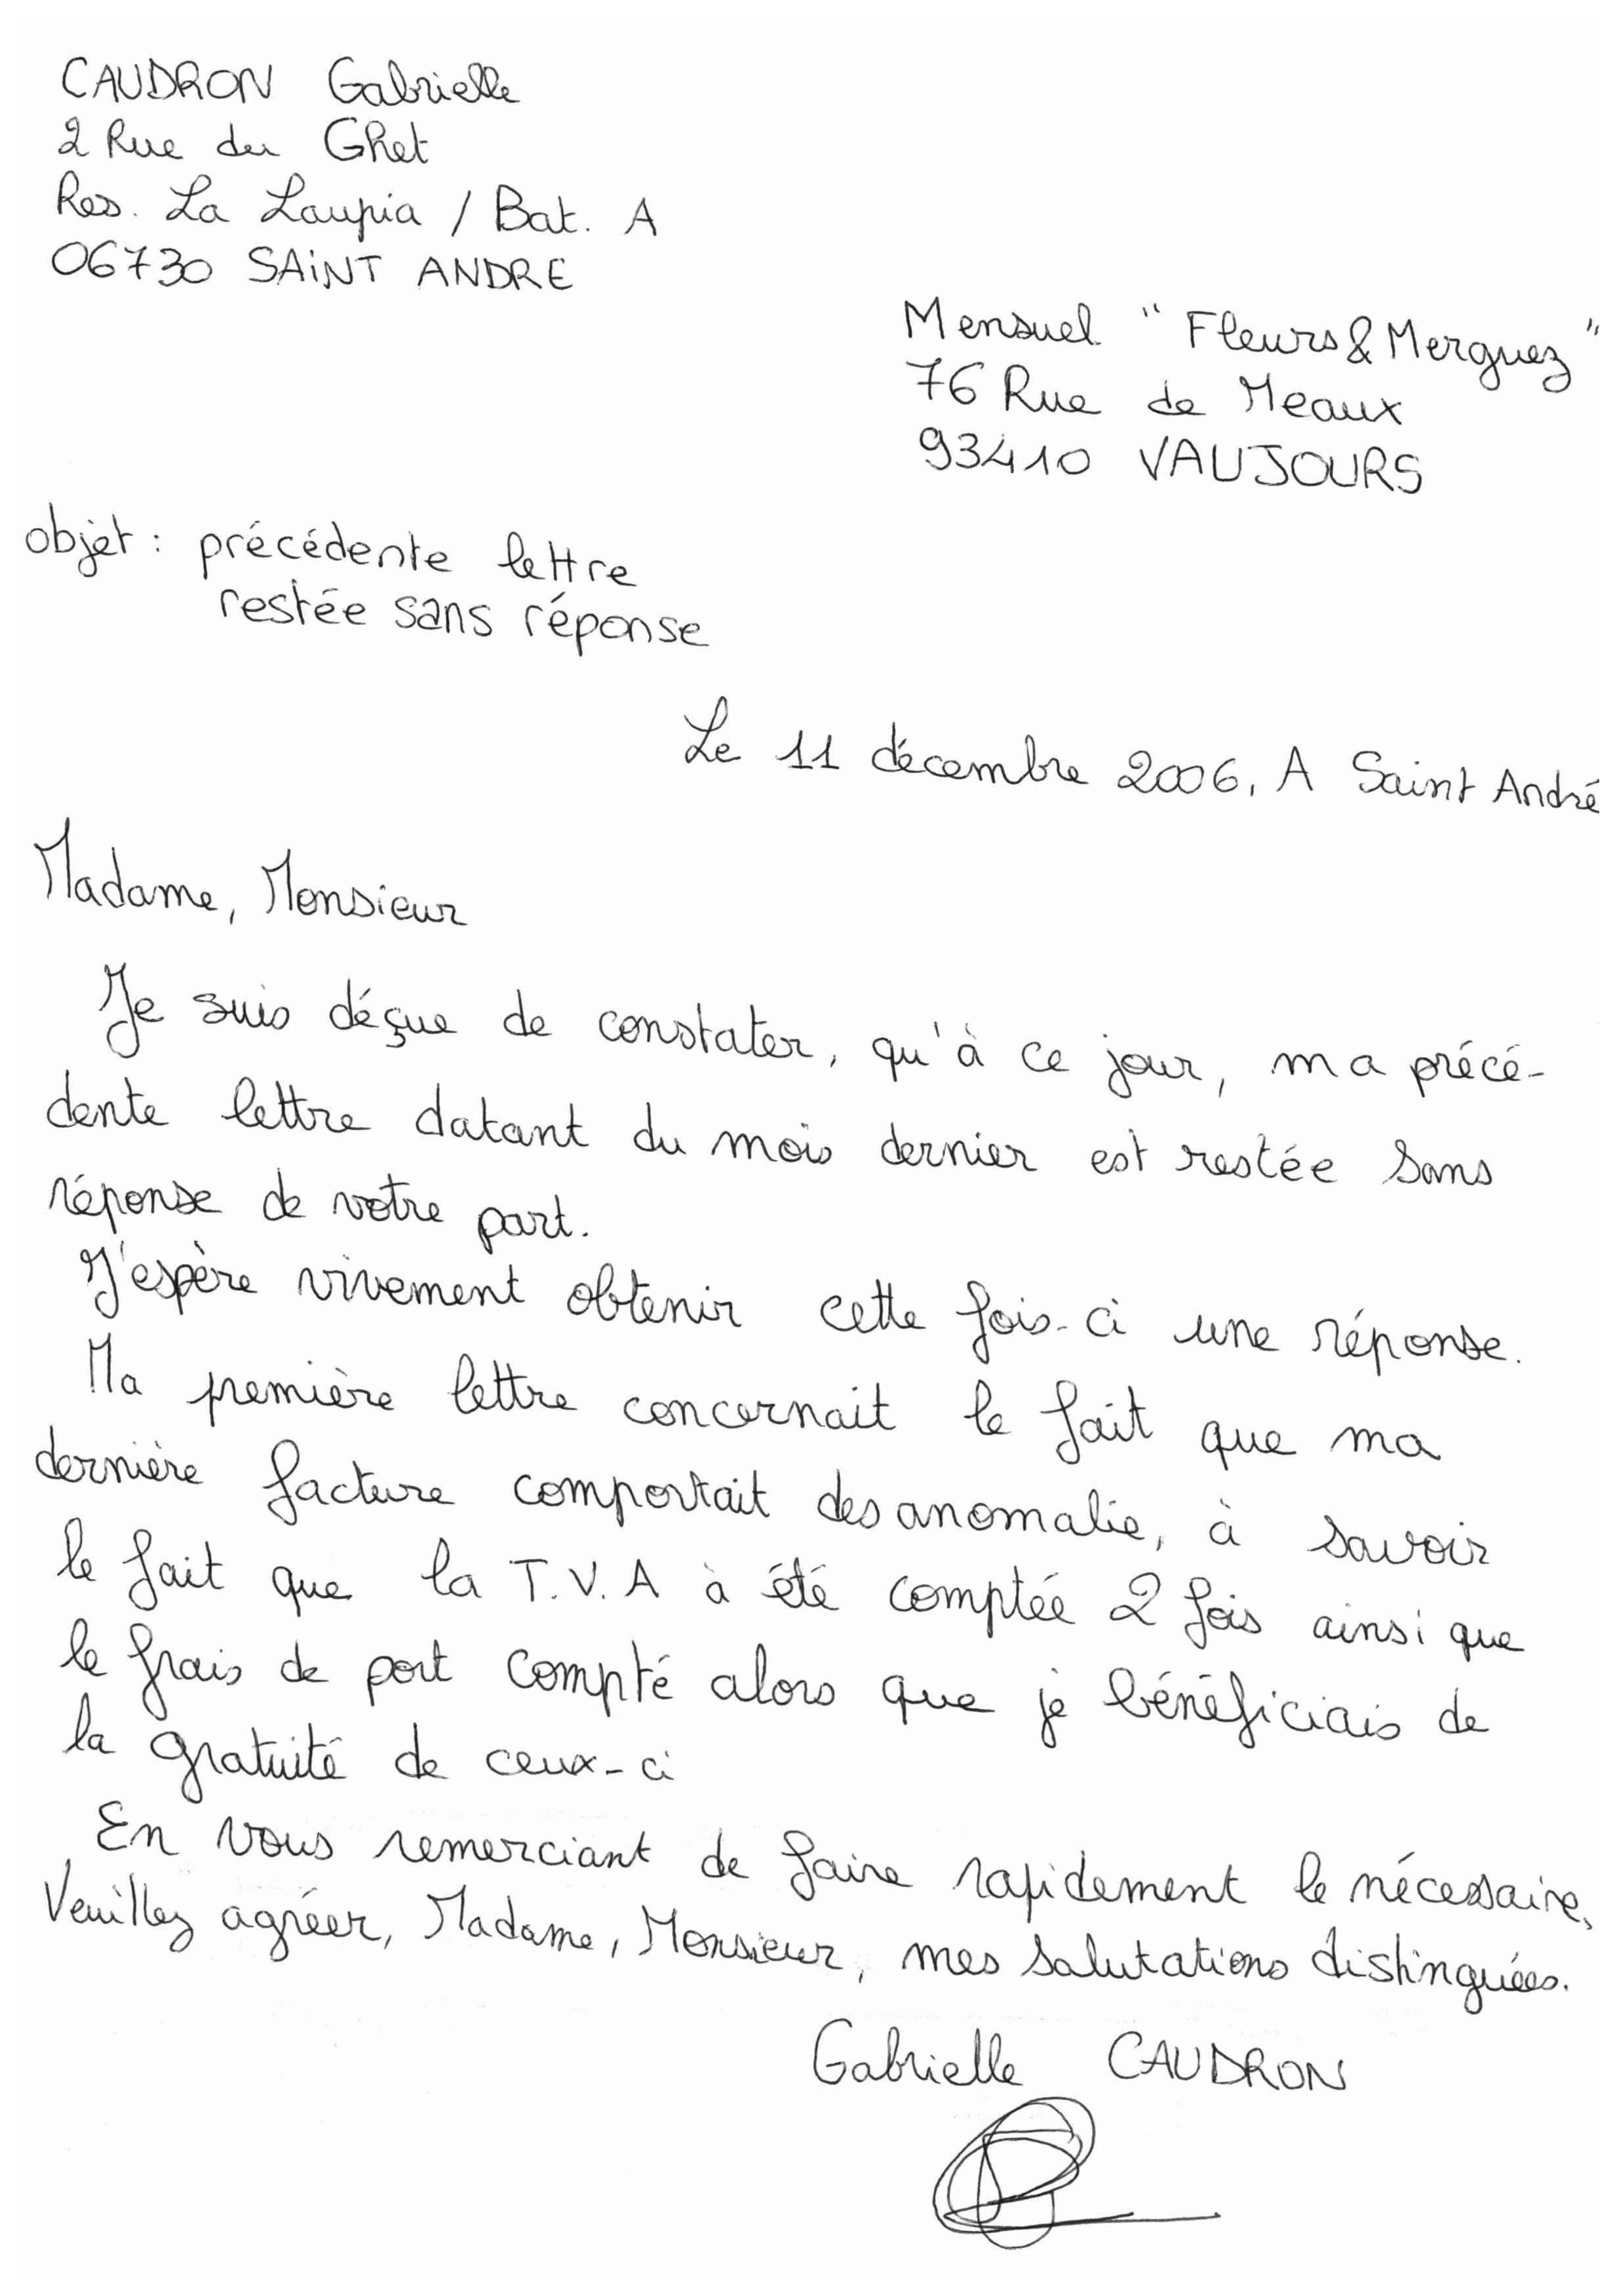 CAUDRON Gabrielle
2 Rue du Ghet
Res. La Laupia / Bat. A
06730 SAINT ANDRE
Mensuel "Fleurs & Merguez"
76 Rue de Meaux
93410 VAUJOURS
objet : précédente lettre
restée sans réponse
Le 11 décembre 2006, A Saint André
Madame, Monsieur
Je suis déçue de constater, qu'à ce jour, ma précé-
dente lettre datant du mois dernier est restée sans
réponse de votre part.
J'espère vivement obtenir cette fois-ci une réponse.
Ma première lettre concernait le fait que ma
dernière facture comportait des anomalie, à savoir
le fait que la T.V.A à été comptée 2 fois ainsi que
le frais de port compté alors que je bénéficiais de
la gratuité de ceux-ci
En vous remerciant de faire rapidement le nécessaire,
Veuillez agréer, Madame, Monsieur, mes salutations distinguées.
Gabrielle CAUDRON